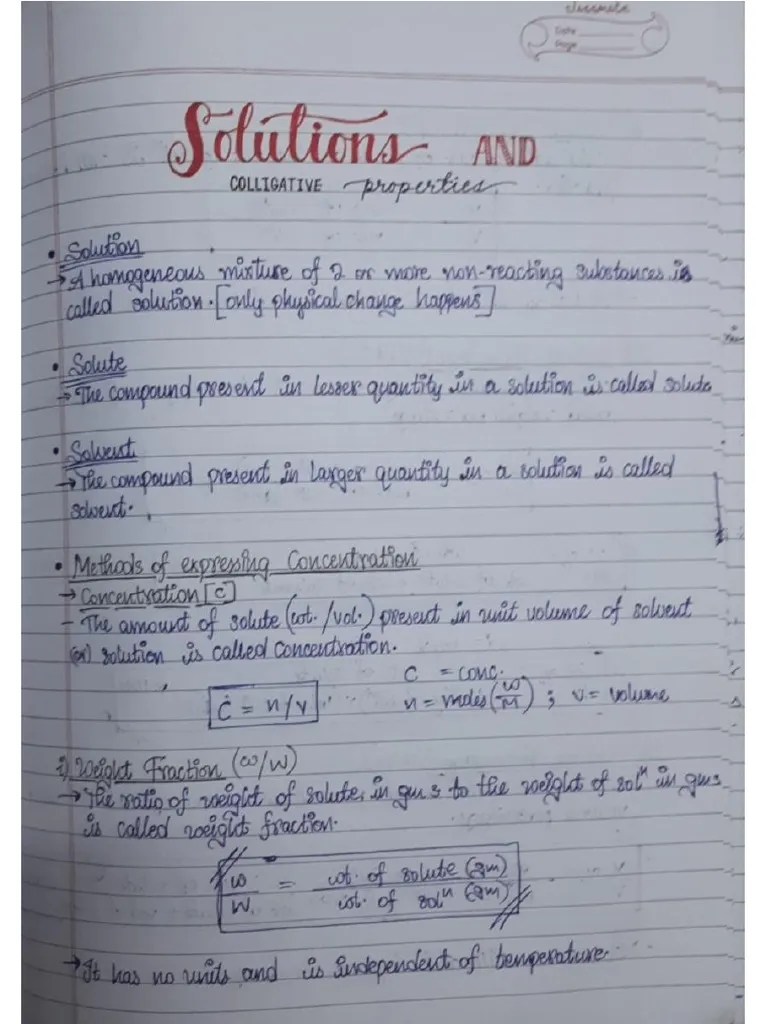 classmate
Date
Page
Solutions AND
COLLIGATIVE properties
• Solution
→ A homogeneous mixture of 2 or more non-reacting substances is
called solution. [only physical change happens]
• Solute
→ The compound present in lesser quantity in a solution is called solute
• Solvent
→ The compound present in larger quantity in a solution is called
solvent.
• Methods of expressing Concentration
→ Concentration [C]
- The amount of solute (wt. /vol.) present in unit volume of solvent
(or) solution is called concentration.
C = conc.
C = n/v n = moles (w/M) ; v = volume
i) Weight Fraction (w/W)
→ The ratio of weight of solute in gms to the weight of solⁿ in gms
is called weight fraction.
w/W = wt. of solute (gm) / wt. of solⁿ (gm)
→ It has no units and is independent of temperature.